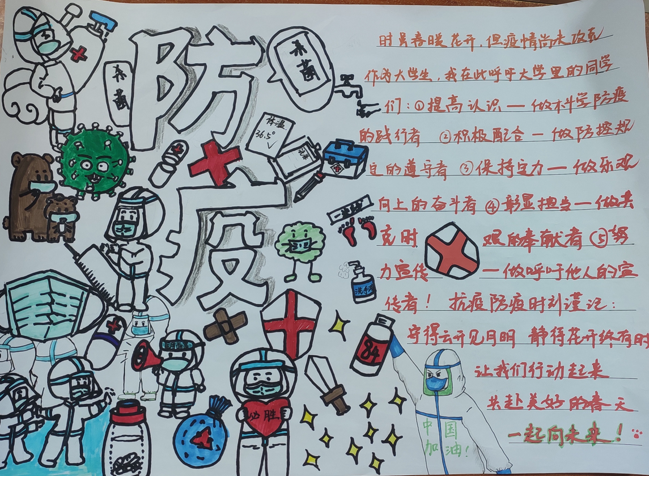 防疫
杀菌
杀菌
体温
36.5°
时易春暖花开，但疫情尚未改乱
作为大学生，我在此呼吁大学里的同学
们：①提高认识一做科学防疫
的践行者 ②积极配合一做防控规
定的遵守者 ③保持定力一做乐观
向上的奋斗者 ④彰显担当一做共
克时 艰的奉献者 ⑤努
力宣传 一做呼吁他人的宣
传者！ 抗疫防疫时刻谨记：
守得云开见月明 静待花开终有时
让我们行动起来
共赴美好的春天
一起向未来！
84
必胜
中国
加油！